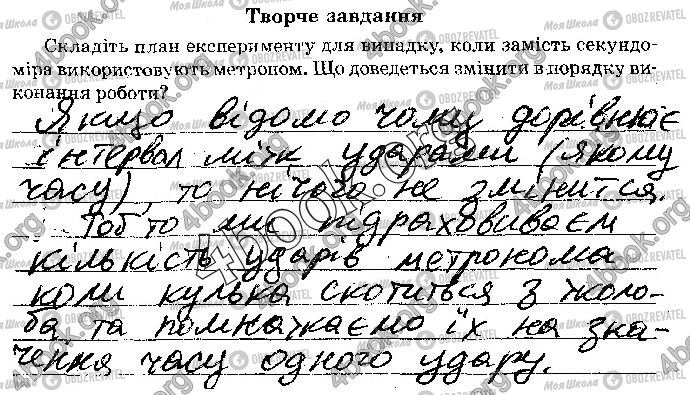 Творче завдання
Складіть план експерименту для випадку, коли замість секундо-
міра використовують метроном. Що доведеться змінити в порядку ви-
конання роботи?
Якщо відомо чому дорівнює
інтервал між ударами (якому
часу), то нічого не зміниться.
Тобто ми підраховиваєм
кількість ударів метронома
коли кулька скотиться з жоло-
ба та помнажаємо їх на зна-
чення часу одного удару.